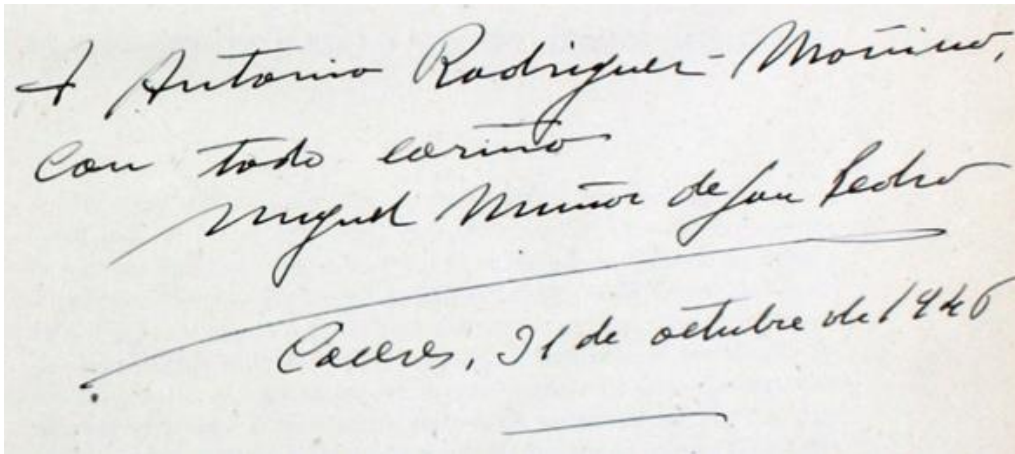 A Antonio Rodriguez-Moñino,
con todo cariño
Miguel Muñoz de San Pedro
Caceres, 31 de octubre de 1946